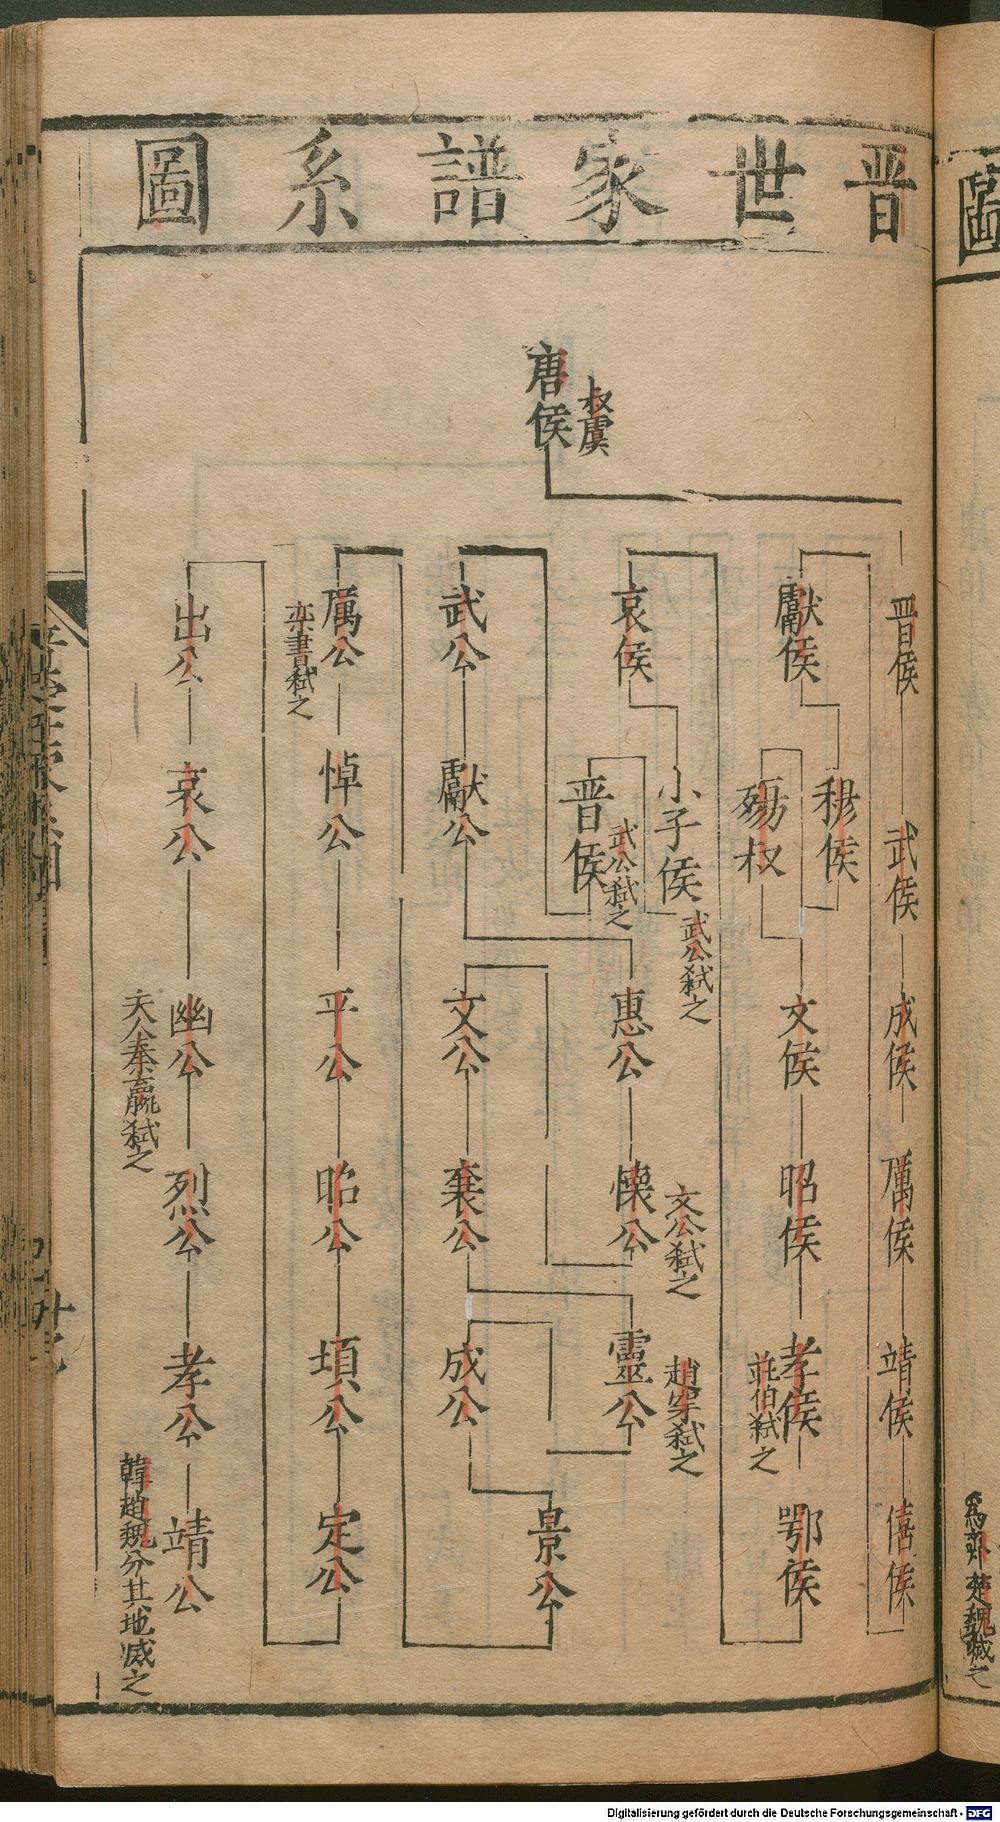 晋世家譜系圖
唐侯
叔虞
晋侯
武侯
成侯
厲侯
靖侯
僖侯
獻侯
穆侯
殤叔
文侯
昭侯
孝侯
莊伯弑之
鄂侯
哀侯
小子侯
武公弑之
晋侯
武公弑之
武公
獻公
惠公
懷公
文公弑之
文公
襄公
靈公
趙穿弑之
成公
景公
厲公
欒書弑之
悼公
平公
昭公
頃公
定公
出公
哀公
幽公
夫人秦嬴弑之
烈公
孝公
靖公
韓趙魏分其地滅之
圖
爲齊楚魏滅之
Digitalisierung gefördert durch die Deutsche Forschungsgemeinschaft - DFG